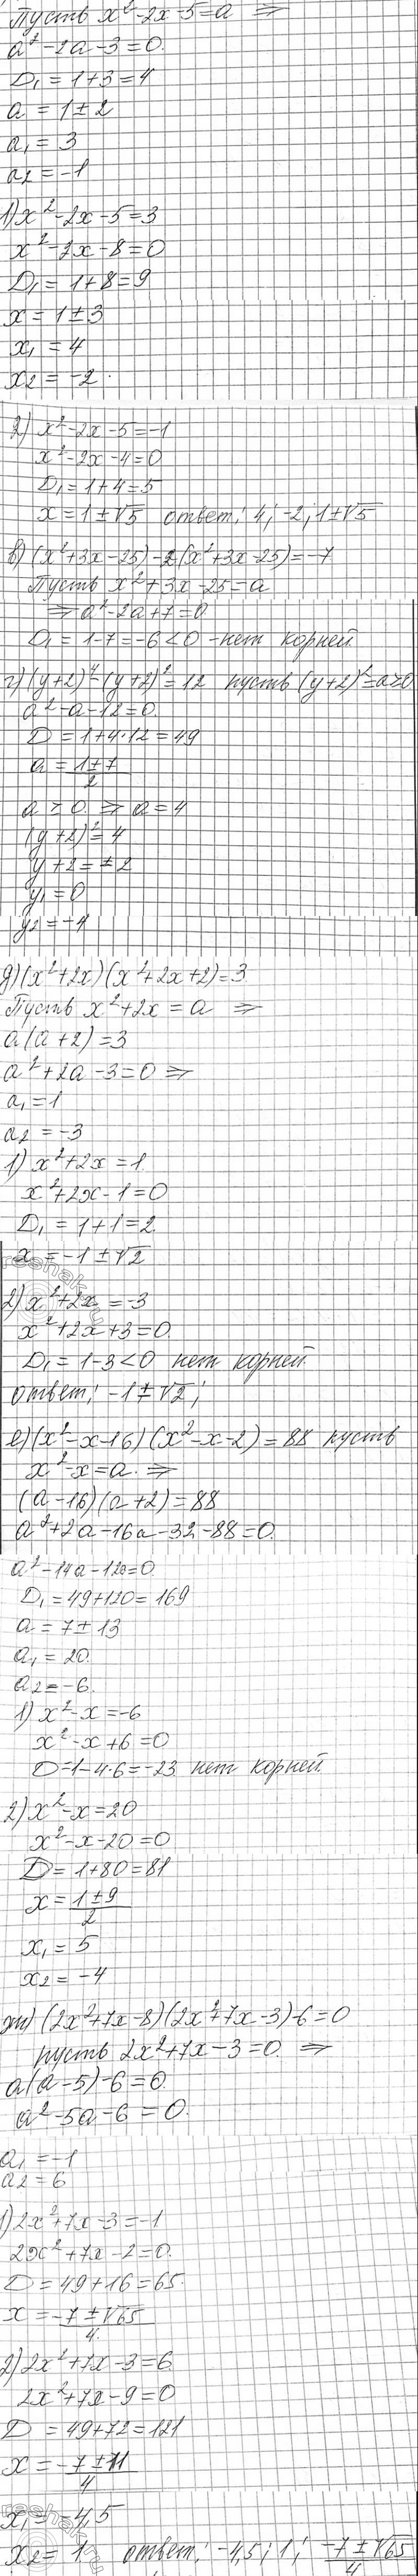 Пусть x²-2x-5=a ⇒
a²-2a-3=0.
D₁=1+3=4
a=1±2
a₁=3
a₂=-1
1) x²-2x-5=3
x²-2x-8=0
D₁=1+8=9
x=1±3
x₁=4
x₂=-2.
2) x²-2x-5=-1
x²-2x-4=0
D₁=1+4=5
x=1±√5 ответ: 4; -2; 1±√5
в) (x²+3x-25)-2(x²+3x-25)=-7
Пусть x²+3x-25=a
⇒ a²-2a+7=0
D₁=1-7=-6<0 -нет корней
г) (y+2)⁴-(y+2)²=12 пусть (y+2)²=a≥0
a²-a-12=0.
D=1+4·12=49
a=(1±7)/2
a≥0 ⇒ a=4
(y+2)²=4
y+2=±2
y₁=0
y₂=-4
д) (x²+2x)(x²+2x+2)=3
Пусть x²+2x=a ⇒
a(a+2)=3
a²+2a-3=0 ⇒
a₁=1
a₂=-3
1) x²+2x=1.
x²+2x-1=0
D₁=1+1=2.
x=-1±√2
2) x²+2x=-3
x²+2x+3=0.
D₁=1-3<0 нет корней
ответ: -1±√2;
е) (x²-x-16)(x²-x-2)=88 пусть
x²-x=a. ⇒
(a-16)(a+2)=88
a²+2a-16a-32-88=0.
a²-14a-120=0.
D₁=49+120=169
a=7±13
a₁=20.
a₂=-6.
1) x²-x=-6
x²-x+6=0
D=1-4·6=-23 нет корней
2) x²-x=20
x²-x-20=0
D=1+80=81
x=(1±9)/2
x₁=5
x₂=-4
ж) (2x²+7x-8)(2x²+7x-3)-6=0
пусть 2x²+7x-3=0. ⇒
a(a-5)-6=0.
a²-5a-6=0.
a₁=-1
a₂=6
1) 2x²+7x-3=-1
2x²+7x-2=0.
D=49+16=65.
x=(-7±√65)/4.
2) 2x²+7x-3=6.
2x²+7x-9=0
D=49+72=121
x=(-7±11)/4
x₁=-4,5
x₂=1. ответ: -4,5; 1; (-7±√65)/4
reshak.ru